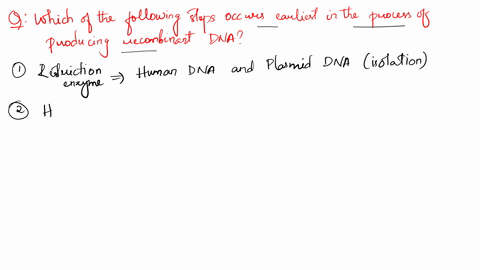 Q: Which of the following steps occurs earliest in the process of
producing recombinant DNA?
① Restriction enzyme ⇒ Human DNA and Plasmid DNA (isolation)
② H